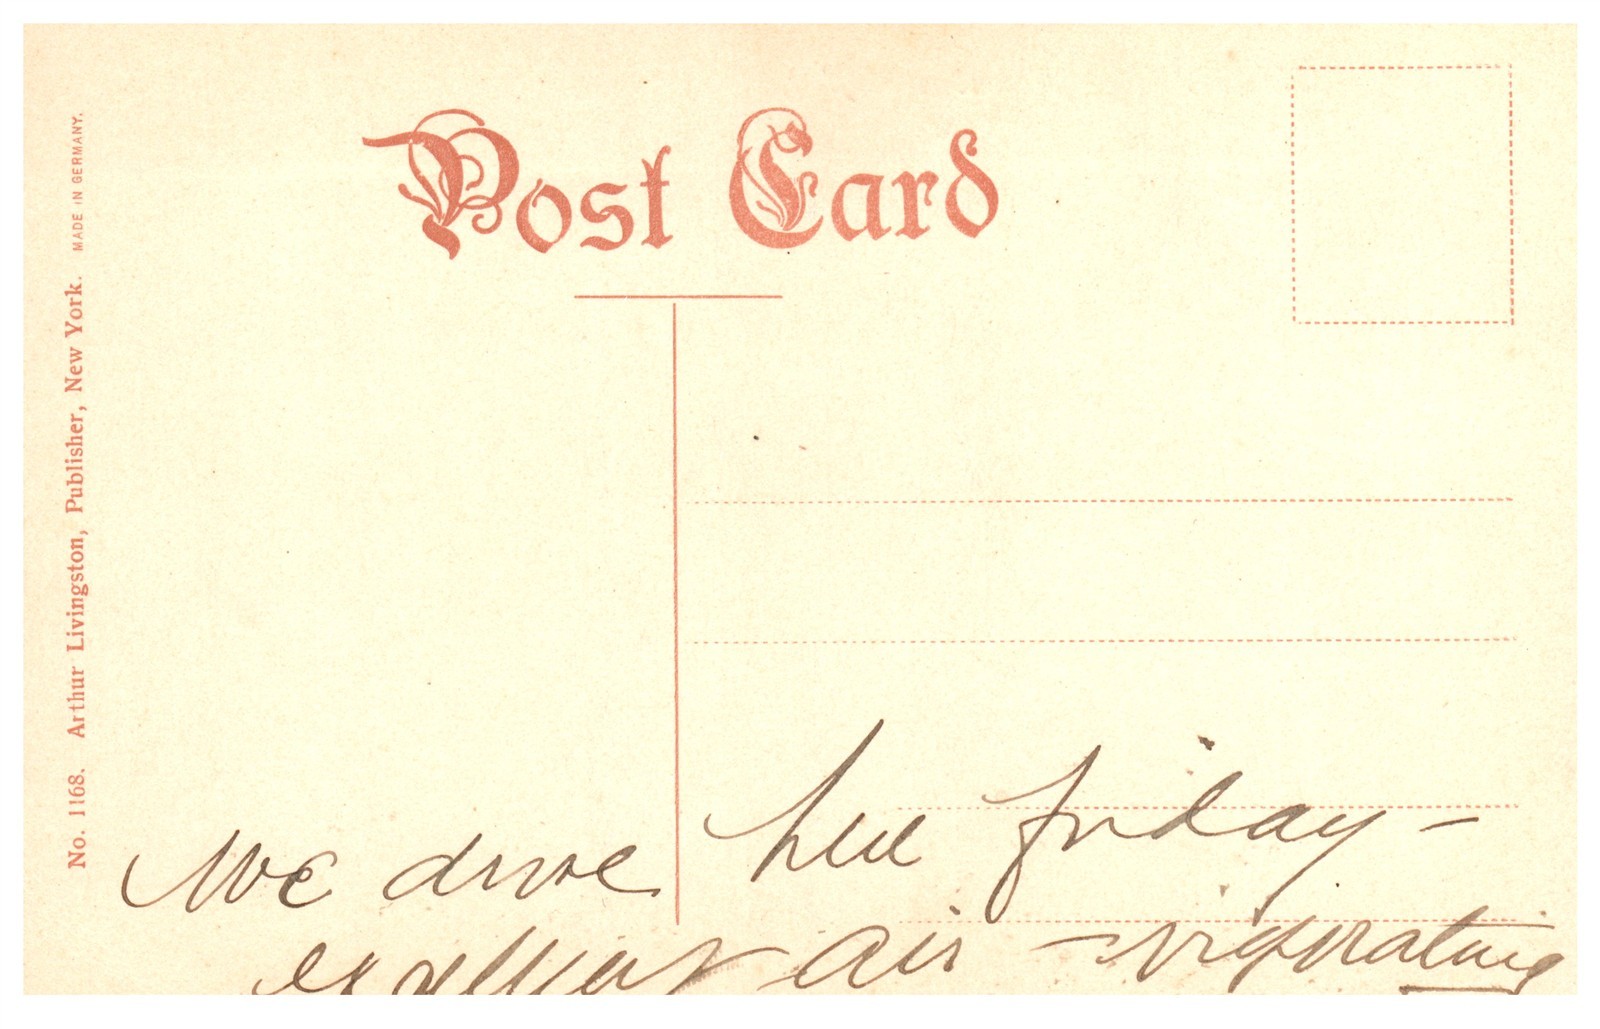 Post Card
No. 1168. Arthur Livingston, Publisher, New York. MADE IN GERMANY.
We drove here Friday -
air - vigorating